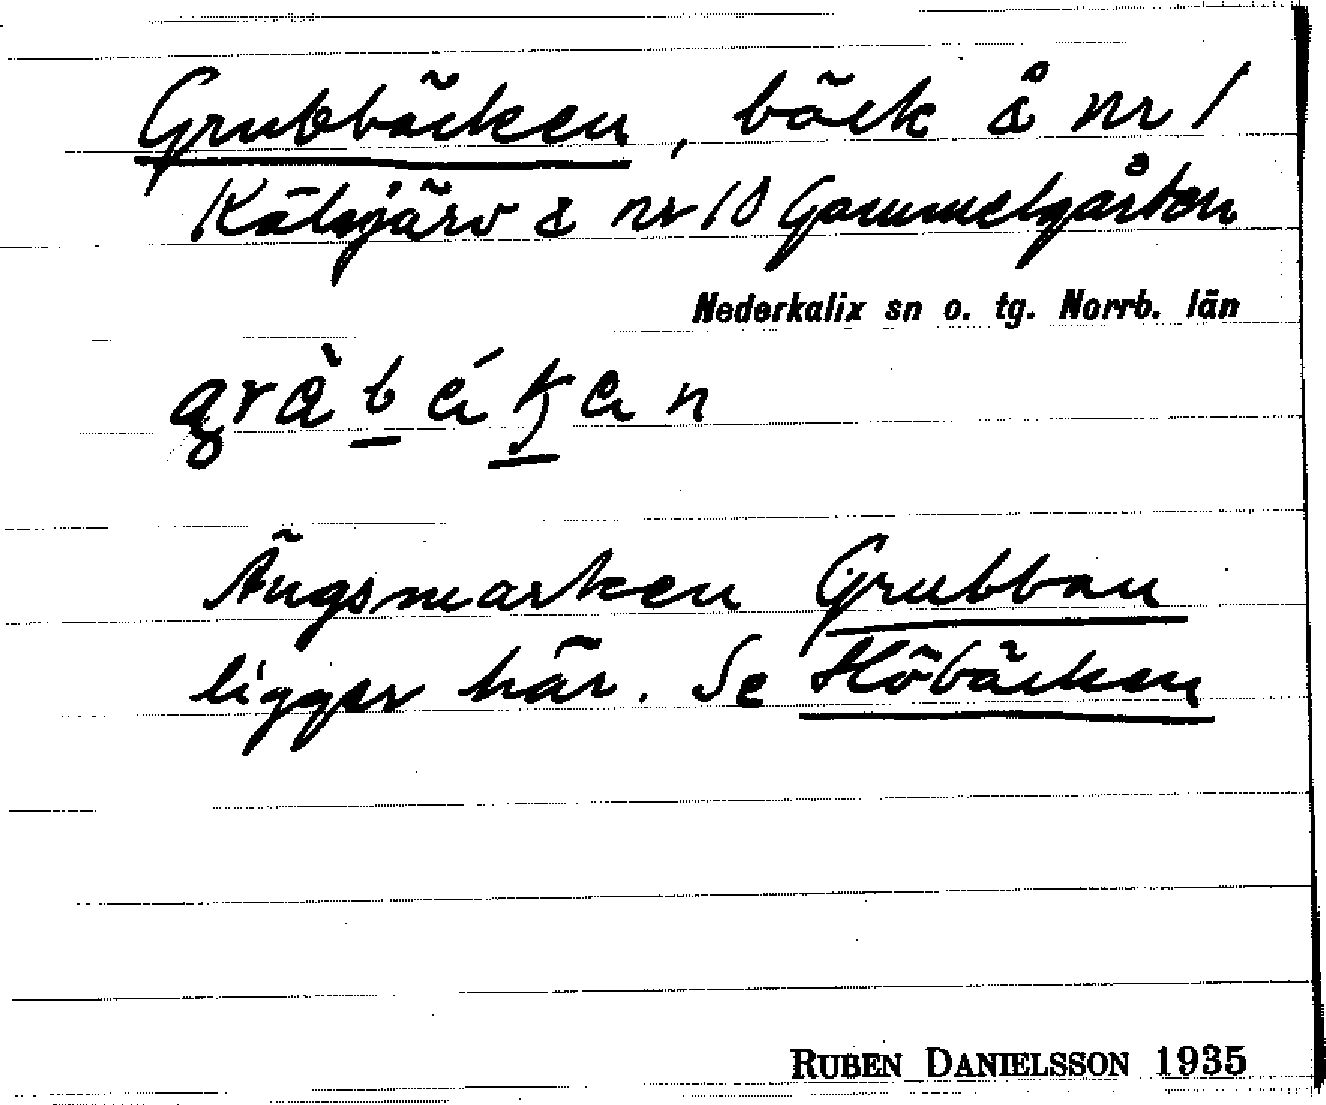 Grubbäcken, bäck å nr 1
Kälvjärv & nr 10 Gammelgården
Nederkalix sn o. tg. Norrb. län
Ängsmarken Grubban
ligger här. Se Höbäcken
RUBEN DANIELSSON 1935